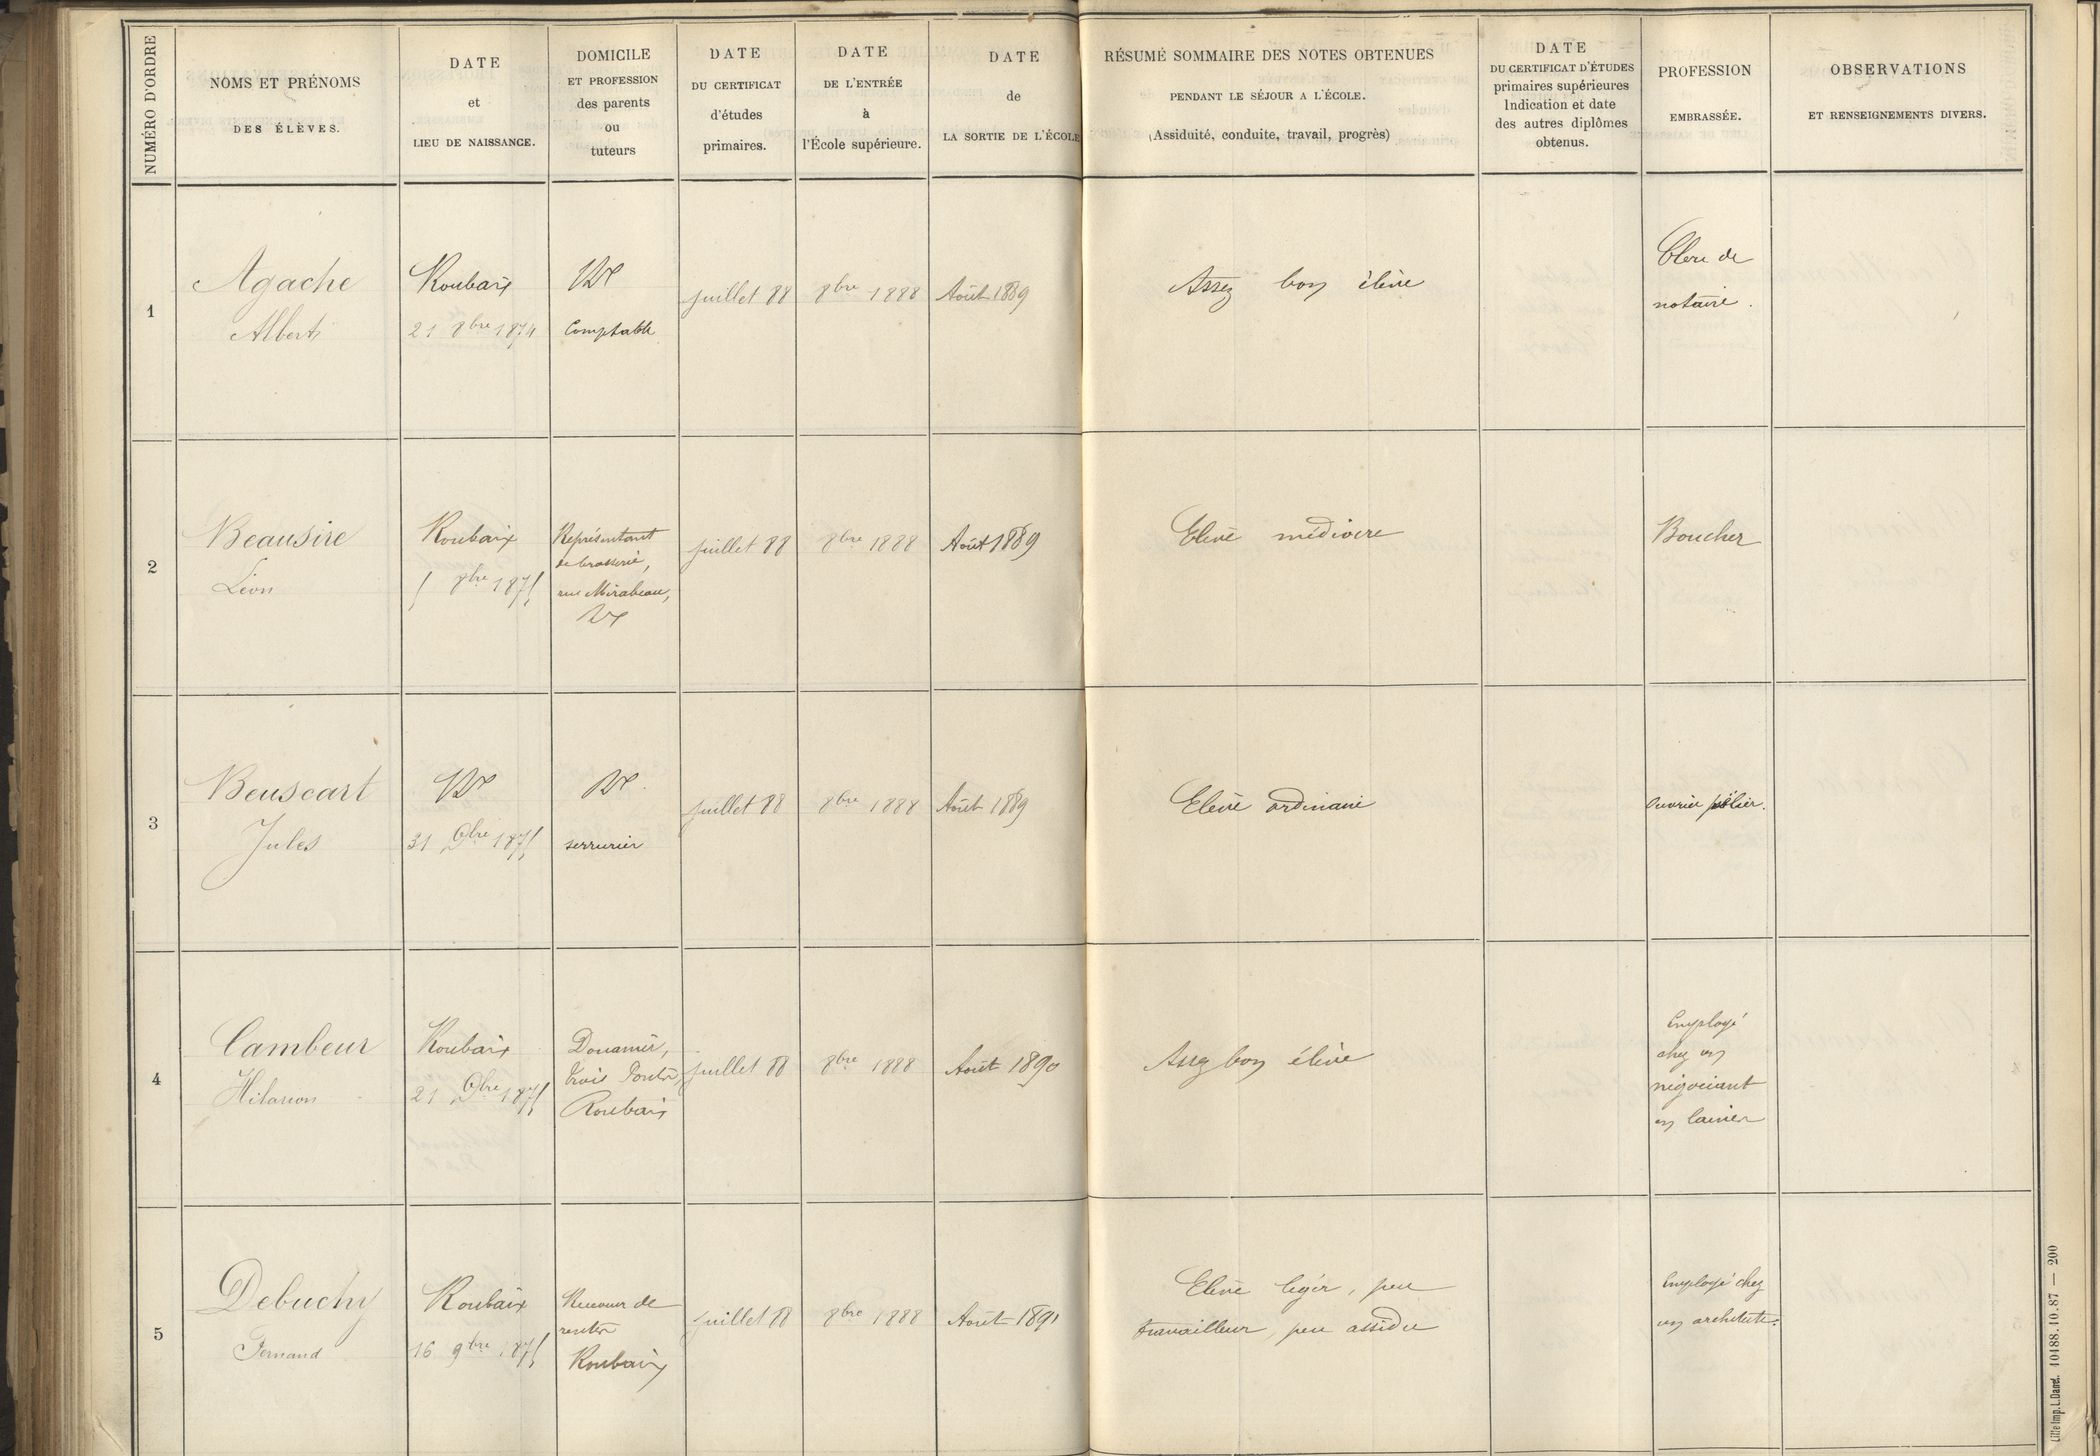 NUMÉRO D'ORDRE
NOMS ET PRÉNOMS
DES ÉLÈVES.
DATE
et
LIEU DE NAISSANCE.
DOMICILE
ET PROFESSION
des parents
ou
tuteurs
DATE
DU CERTIFICAT
d'études
primaires.
DATE
DE L'ENTRÉE
à
l'École supérieure.
DATE
de
LA SORTIE DE L'ÉCOLE
RÉSUMÉ SOMMAIRE DES NOTES OBTENUES
PENDANT LE SÉJOUR A L'ÉCOLE.
(Assiduité, conduite, travail, progrès)
DATE
DU CERTIFICAT D'ÉTUDES
primaires supérieures
Indication et date
des autres diplômes
obtenus.
PROFESSION
EMBRASSÉE.
OBSERVATIONS
ET RENSEIGNEMENTS DIVERS.
1
Agache
Albert
Roubaix
21 8bre 1874
Comptable
juillet 88
8bre 1888
Août 1889
Assez bon élève
Clerc de
notaire.
2
Beausire
Léon
Roubaix
5 8bre 1875
Représentant
de brasserie,
rue Mirabeau,
juillet 88
8bre 1888
Août 1889
Elève médiocre
Boucher
3
Beuscart
Jules
31 Xbre 1875
serrurier
juillet 88
8bre 1888
Août 1889
Elève ordinaire
Ouvrier
4
Cambeur
Hilarion
Roubaix
21 Xbre 1875
Douanier,
Trois Ponts,
Roubaix
juillet 88
8bre 1888
Août 1890
Assez bon élève
Employé
chez un
négociant
en laines
5
Debuchy
Fernand
Roubaix
16 9bre 1875
Receveur de
rentes
Roubaix
juillet 88
8bre 1888
Août 1891
Elève léger, peu
travailleur, peu assidu
Employé chez
un architecte.
Lille Imp. L. Danel. 10188.10.87 — 200